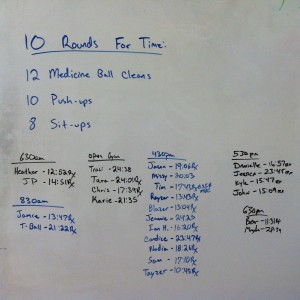 10 Rounds For Time:
12 Medicine Ball Cleans
10 Push-ups
8 Sit-ups
630am
Heather - 12:52Rx
JP - 14:51Rx
830am
Jamie - 13:47Rx
T-Ball - 21:22Rx
open Gym
Traci - 24:38
Tara - 24:01Rx
Chris - 17:34Rx
Karie - 21:35
430pm
Jason - 19:06Rx
Missy - 30:53
Tim - 17:43Rx
Roger - 13:43Rx
Blazer - 13:04Rx
Jennie - 24:25
Ian H. - 16:20Rx
Candice - 23:47Rx
Nadia - 18:26Rx
Sam - 17:10Rx
Tayzer - 10:45Rx
530pm
Danielle - 16:57
Jessica - 23:47Rx
Kyle - 15:47
John - 15:09
630pm
Ben - 11:51